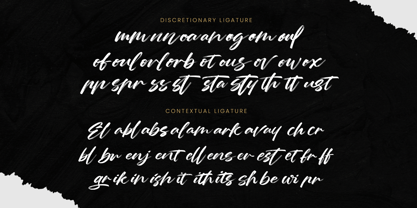 DISCRETIONARY LIGATURE
mm nn oa an og om oul
of oul or lorb ot ous ov ow ox
pp spr ss st sta sty th tt ust
CONTEXTUAL LIGATURE
El abl abs alam ark avay ch cr
bl br enj ent ell ens cr est et fr ff
gr ik in ish it ith its sh be wi pr